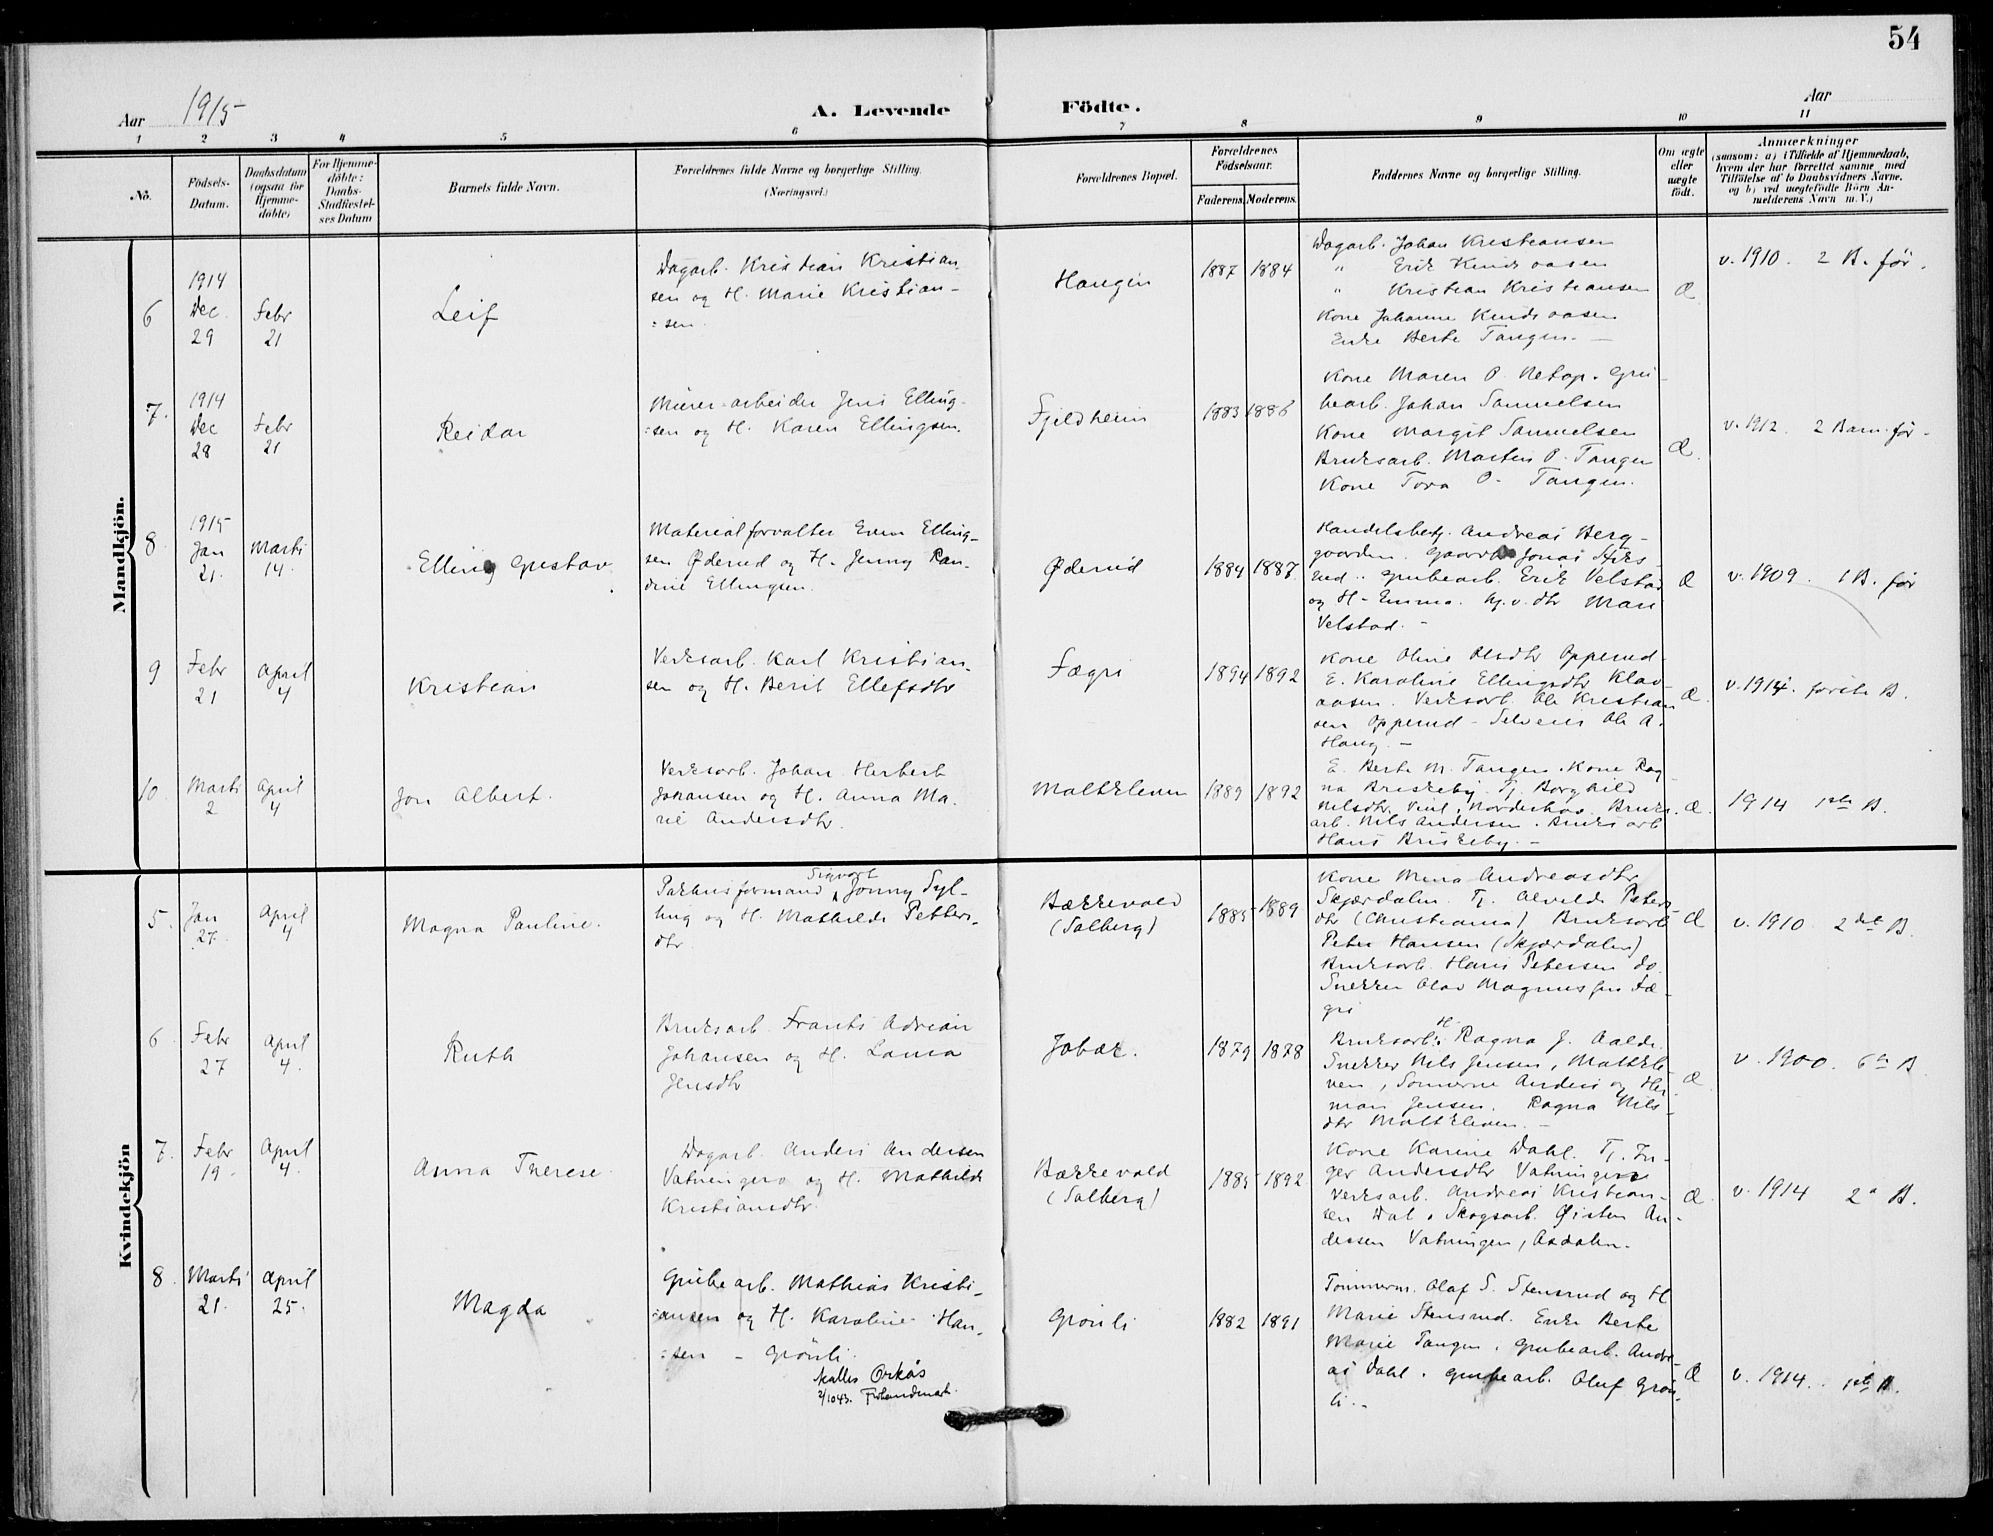 54
Aar 1915
A. Levende Födte.
Aar
1 2 3 4 5 6 7 8 9 10 11
No.
Födsels-Datum.
Daabsdatum (ogsaa for Hjemme-döbte)
For Hjemme-döbte: Daabs-Stadfæstel-ses Datum
Barnets fulde Navn.
Forældrenes fulde Navne og borgerlige Stilling.
(Næringsvei.)
Forældrenes Bopæl.
Forældrenes Födselsaar.
Faderens. Moderens.
Faddernes Navne og borgerlige Stilling.
Om ægte eller uægte födt.
Anmærkninger
(saasom: a) i Tilfælde af Hjemmedaab,
hvem der har forrettet samme, med
Tilföielse af to Daabsvidners Navne,
og b) ved uægtefödte Börn An-
melderens Navn m. V.)
Mandkjön.
6
1914
Dec.
29
Febr
21
Leif
Dagarb. Kristian Kristian-
sen og H. Marie Kristian-
=sen.
Haugen
1887 1884
Dagarb. Johan Kristiansen
" Erik
" Kristian Kristiansen
Kone Johanne
Enke Berte Tangen. —
Æ
v. 1910. 2 B. før.
7.
1914
Dec
28
Febr
21
Reidar
Murer-arbeider Jens Elling-
=sen og H. Karen Ellingsen.
Fjeldheim
1883 1886
Kone Maren P. Gru-
bearb. Johan Samuelsen
Kone Margit Samuelsen
Bruksarb. Martin P. Tangen
Kone Tora P. Tangen.
Æ.
v. 1912. 2 Barn før.
8
1915
Jan
21.
Marts
14.
Elling Gustav
Materialforvalter Even Elling-
sen Øderud og H. Jenny Ran-
dine Ellingsen.
Øderud
1884 1887.
Handelsbetj. Andreas Berg-
gaarden. Jonas
Grubearb. Erik Velstad
og H. Emma. Mari
Velstad. -
Æ
v. 1909. 1 B. før
9
Febr
21
April
4
Kristian
Verksarb. Karl Kristian-
sen og H. Berit Ellefsdtr
Fægri
1894 1892
Kone Oline Olsdtr Opperud.
E. Karoline Ellingsdtr Klov-
aasen. Verksarb. Ole Kristian
sen Opperud - Selveier Ole A.
Haug. -
Æ.
v. 1914. første B.
10
Marts
2
April
4
Jon Albert.
Verksarb. Johan Herbert
Johansen og H. Anna Ma-
rie Andersdtr.
Maltkleven
1889 1892
E. Berte M. Tangen. Kone Rag
na Briskeby. Tj. Borghild
Nilsdtr. Norderhov. Bruks
arb. Nils Andersen. Bruksarb
Hans Briskeby. -
Æ.
1914 1ste B.
Kvindekjön
5.
Jan
27.
April
4
Magna Pauline.
Sigvart
Pakhusformand Jonny Syl-
ling og H. Mathilde Petters-
dtr
Bækkevold
(Solberg)
1885 1889
Kone Mina Andreasdtr
Skjærdalen. Tj. Alvilde Peters-
dtr (Christiania) Bruksarb
Peter Hansen (Skjærdalen)
Bruksarb. Hans Petersen do.
Snekker Olav Magnussen Fæ-
gri
Æ
v. 1910 2det B.
6
Febr
27
April
4.
Ruth
Bruksarb. Frants Adrian
Johansen og H. Laura
Jensdtr
1879 1878
Bruksarb. H. Ragna J.
Snekker Nils Jensen, Maltkle-
ven, Sønnerne Anders og Her
man Jensen. Ragna Nils-
dtr Maltkleven. -
Æ.
v. 1900. 6te B.
7.
Febr
19.
April
4.
Anna Therese.
Dagarb. Anders Andersen
og H. Mathilde
Kristiansdtr.
Bækkevold
(Solberg)
1885 1892
Kone Karine Dahl. Tj. In-
ger Andersdtr
Verksarb. Andreas Kristian-
sen Dal, Skogsarb. Øisten An-
dersen Vatningen, Aadalen.
Æ.
v. 1914 2 B.
8.
Marts
21.
April
25.
Magda
Grubearb. Mathias Kristi-
=ansen og H. Karoline Han-
=sen - Grønli.
kalles Orkås
2/10 43.
Grønli
1882 1891
Tømmerm. Olaf S. Stensrud og H
Marie Stensrud. Enke Berte
Marie Tangen. Grubearb. Andre-
as Dahl. Grubearb. Oluf Grøn-
li. -
Æ
v. 1914. 1ste B.